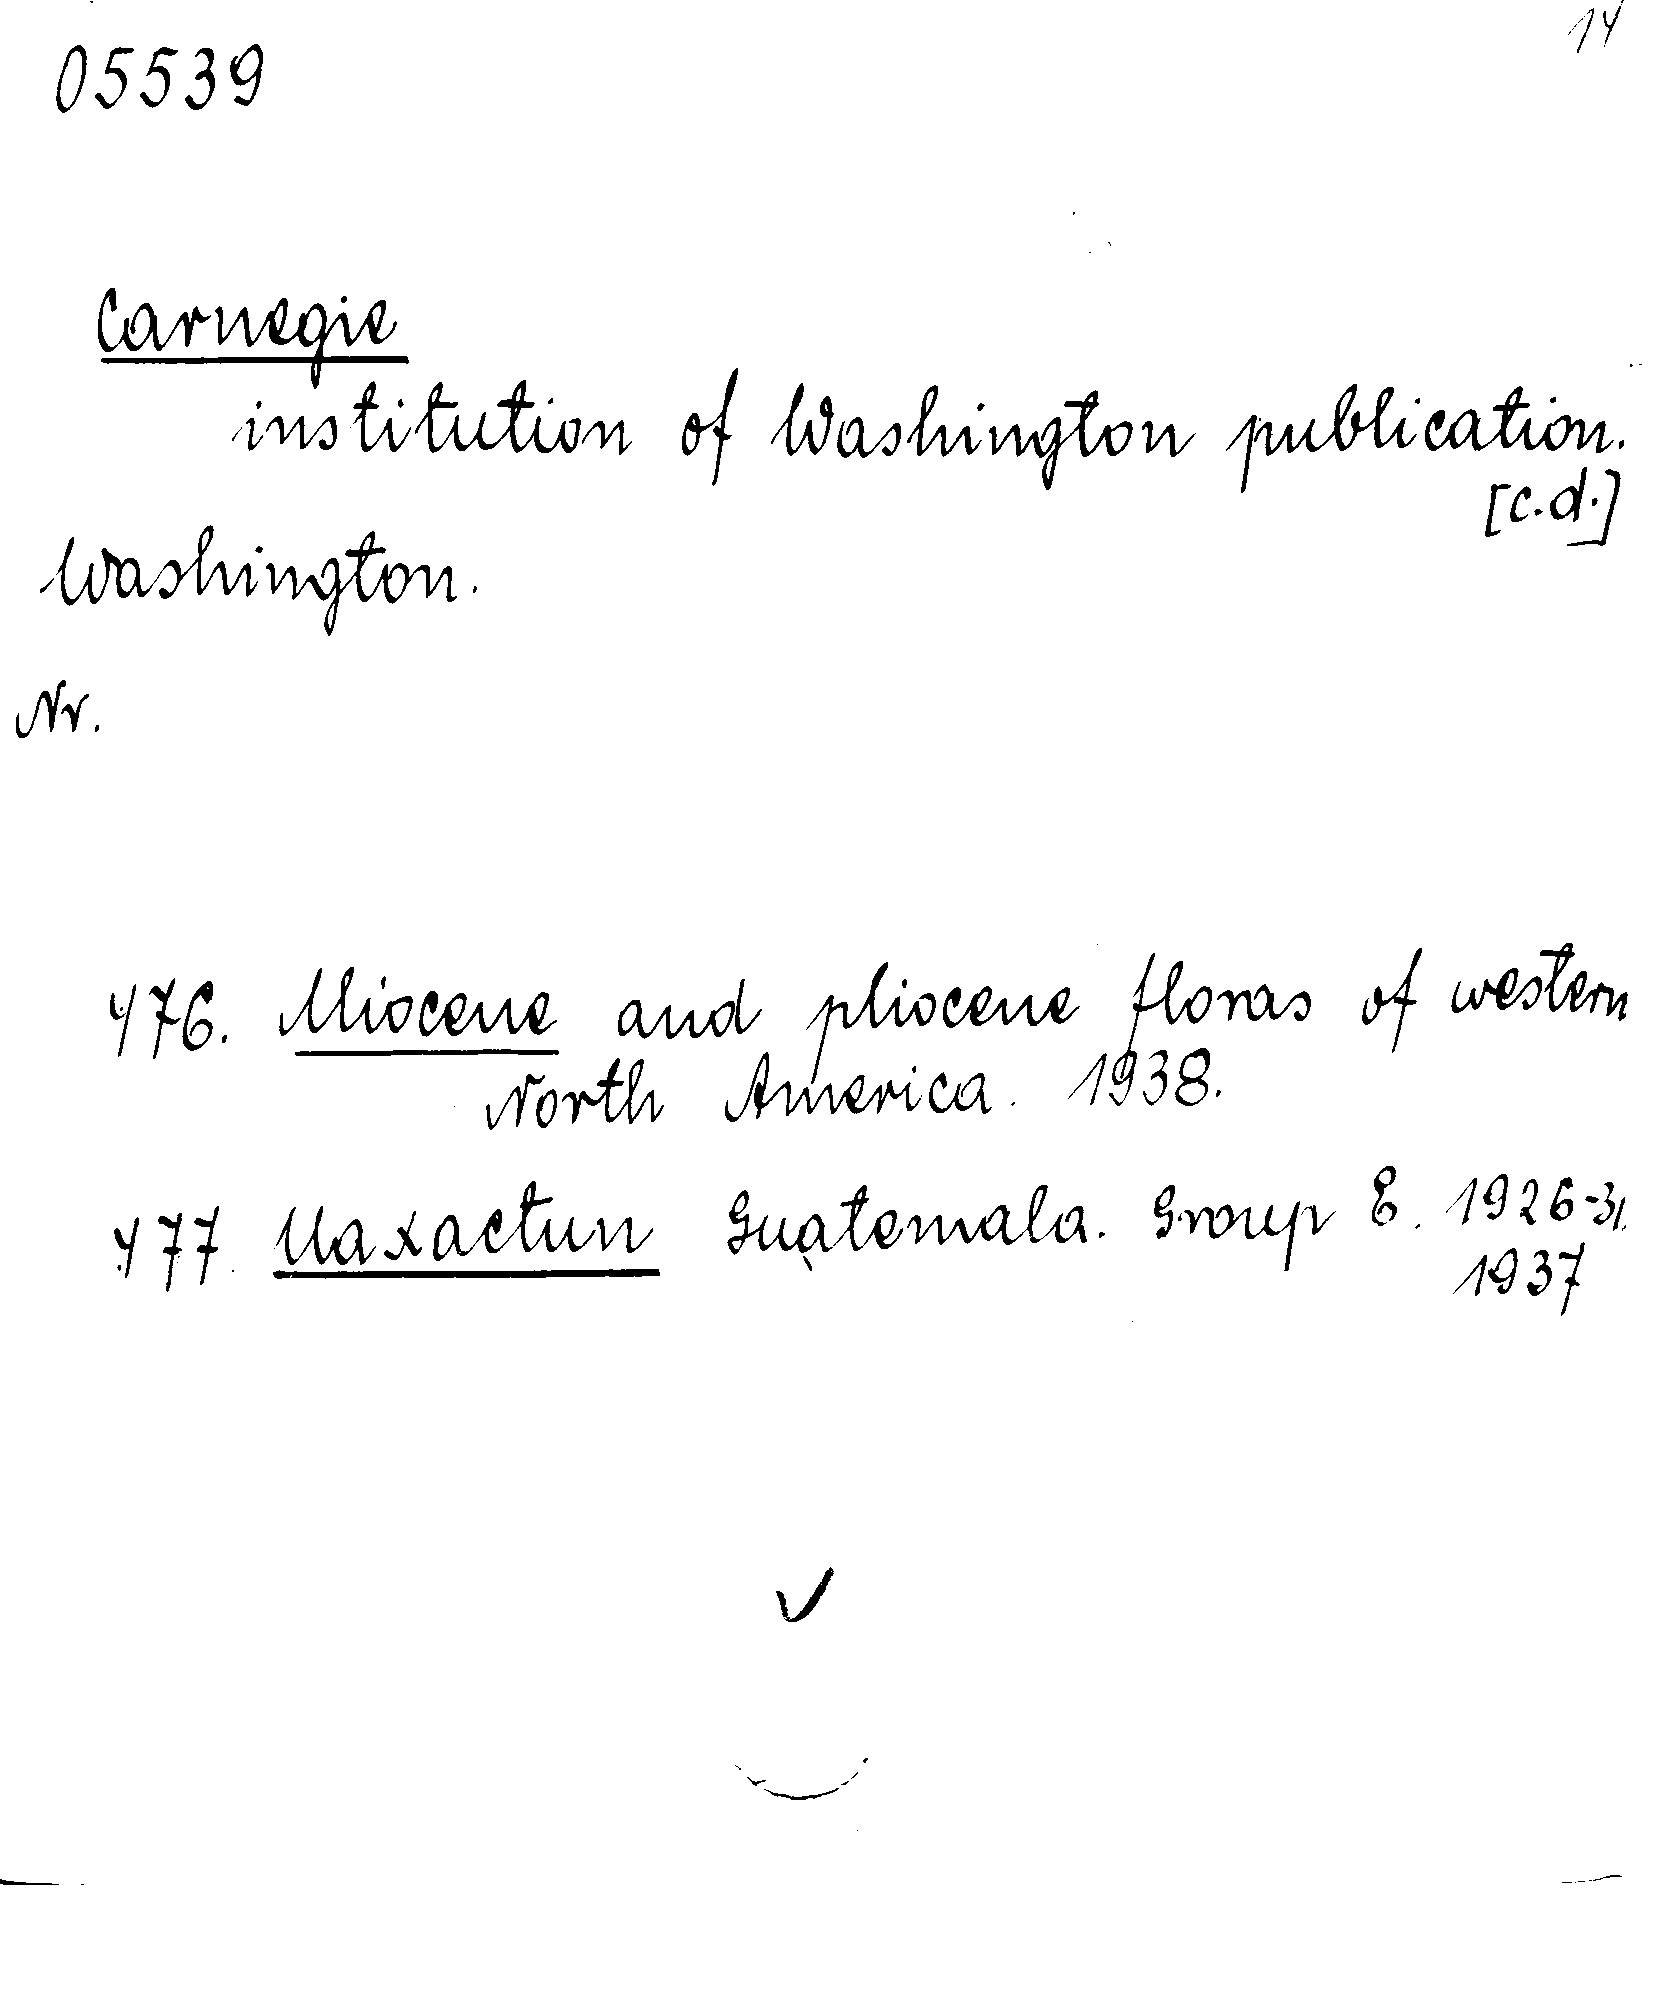 14
05539
Carnegie
institution of Washington publication.
[c.d.]
Washington.
Nr.
476. Miocene and pliocene floras of western
North America. 1938.
477. Uaxactun Guatemala. Group E. 1926-31.
1937